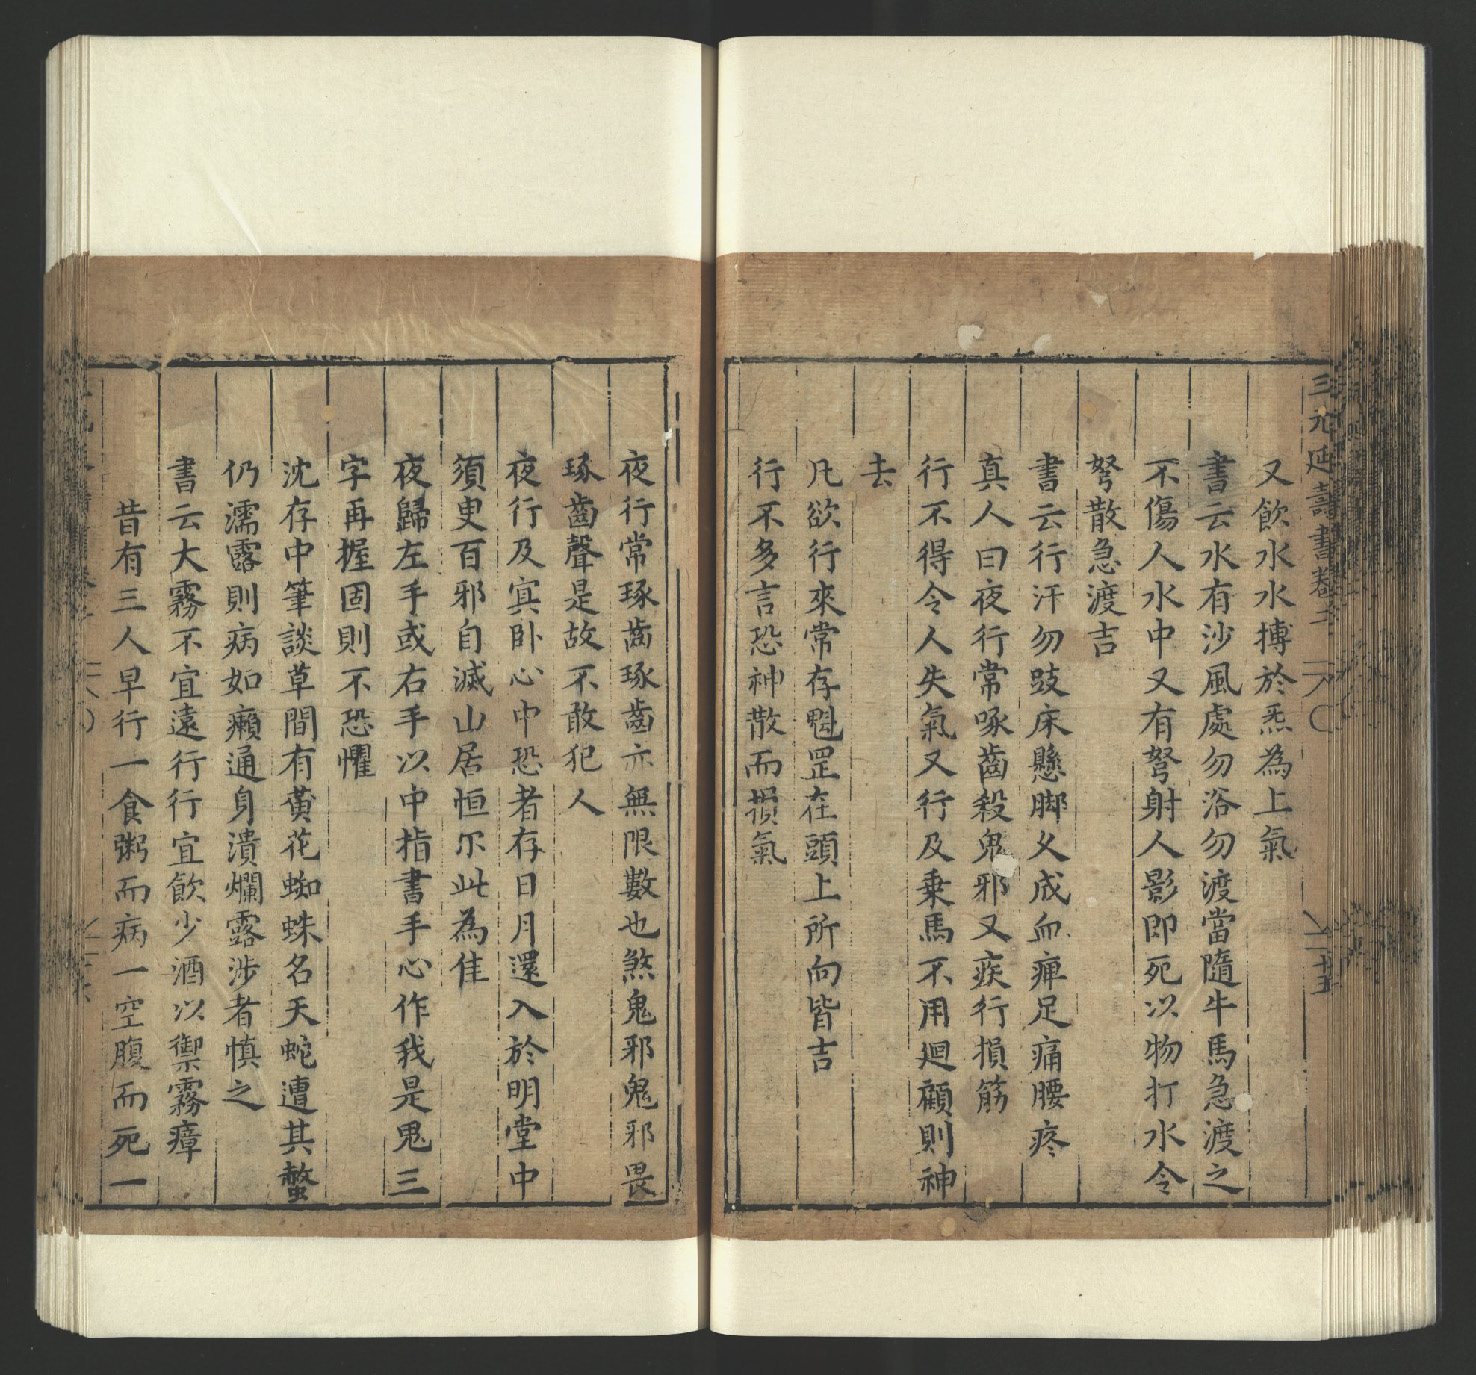 三元延壽書卷之
又飲水水搏於炁為上氣
書云水有沙風處勿浴勿渡當隨牛馬急渡之
不傷人水中又有弩射人影即死以物打水令
弩散急渡吉
書云行汗勿跂床懸脚乆成血痺足痛腰疼
真人曰夜行常啄齒殺鬼邪又疾行損筋
行不得令人失氣又行及乗馬不用廻顧則神
去
凡欲行來常存魁罡在頭上所向皆吉
行不多言恐神散而損氣
夜行常琢齒琢齒亦無限數也煞鬼邪鬼邪畏
琢齒聲是故不敢犯人
夜行及㝠卧心中恐者存日月還入於明堂中
須臾百邪自滅山居恒尔此為佳
夜歸左手或右手以中指書手心作我是鬼三
字再握固則不恐懼
沈存中筆談草間有黄花蜘蛛名天蛇遭其螫
仍濡露則病如癩通身潰爛露涉者慎之
書云大霧不宜遠行行宜飲少酒以禦霧瘴
昔有三人早行一食粥而病一空腹而死一